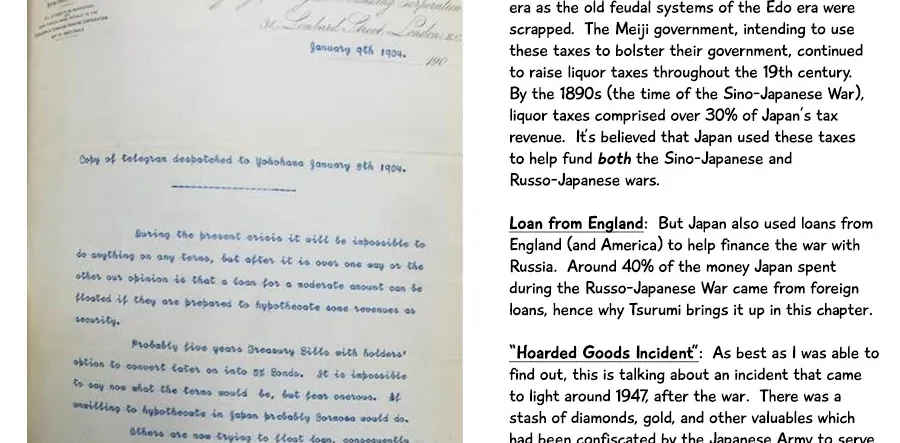 Banking Corporation
31. Lombard Street, London, E.C.
January 9th 1904.
190
Copy of telegram despatched to Yokohama January 8th 1904.
During the present crisis it will be impossible to
do anything on any terms, but after it is over one way or the
other our opinion is that a loan for a moderate amount can be
floated if they are prepared to hypothecate some revenues as
security.
Probably five years Treasury Bills with holders'
option to convert later on into 5% Bonds. It is impossible
to say now what the terms would be, but fear onerous. If
unwilling to hypothecate in Japan probably Formosa would do.
Others are now trying to float loan, consequently
era as the old feudal systems of the Edo era were
scrapped. The Meiji government, intending to use
these taxes to bolster their government, continued
to raise liquor taxes throughout the 19th century.
By the 1890s (the time of the Sino-Japanese War),
liquor taxes comprised over 30% of Japan's tax
revenue. It's believed that Japan used these taxes
to help fund both the Sino-Japanese and
Russo-Japanese wars.
Loan from England: But Japan also used loans from
England (and America) to help finance the war with
Russia. Around 40% of the money Japan spent
during the Russo-Japanese War came from foreign
loans, hence why Tsurumi brings it up in this chapter.
"Hoarded Goods Incident": As best as I was able to
find out, this is talking about an incident that came
to light around 1947, after the war. There was a
stash of diamonds, gold, and other valuables which
had been confiscated by the Japanese Army to serve